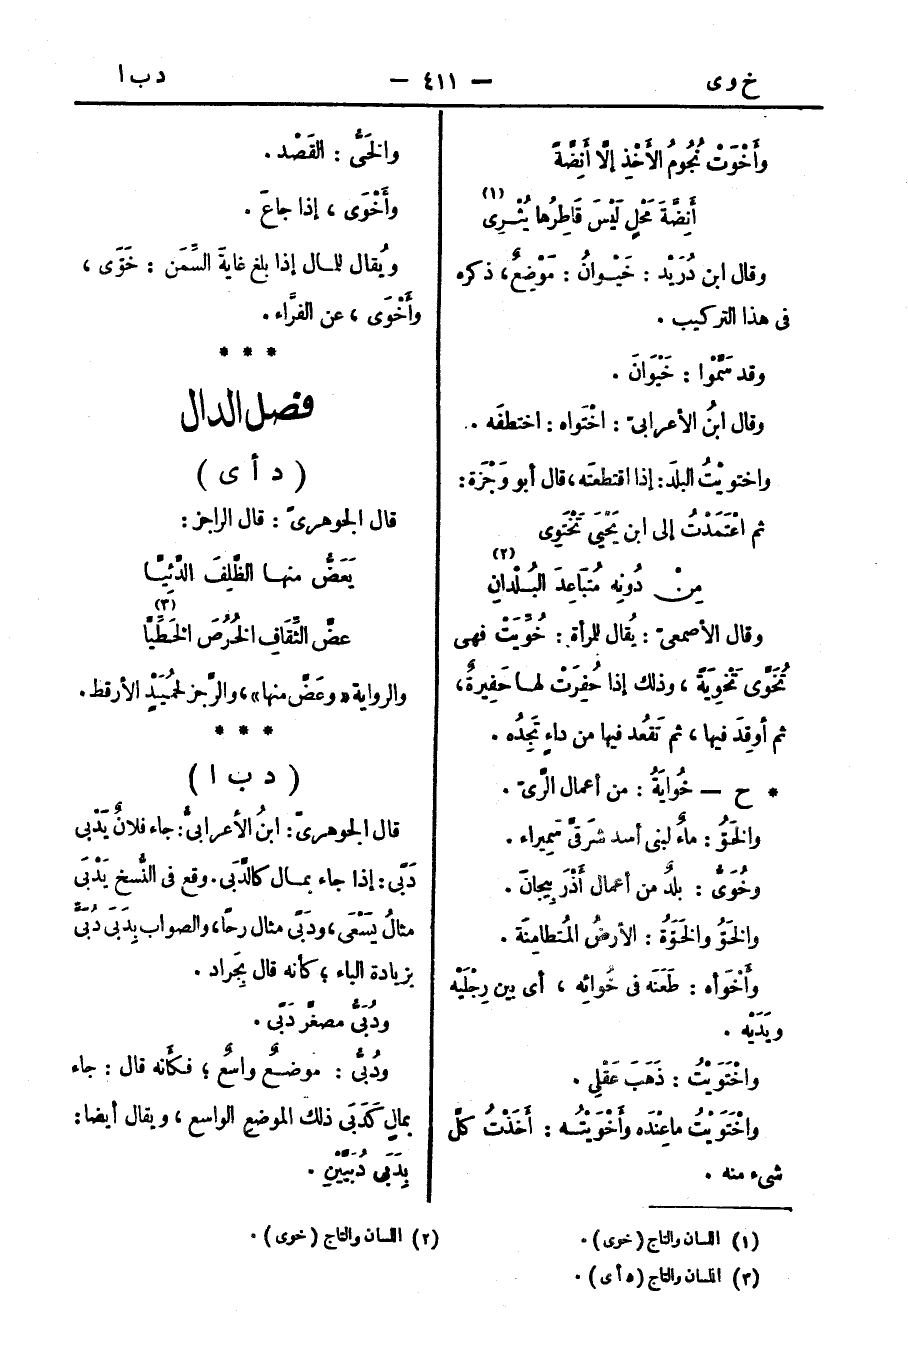 خ وى — ٤١١ — د ب ا
وأَخْوَتْ نُجُومُ الأَخْذِ إلَّا أَنِضَّةً
أَنِضَّةَ مَحْلٍ لَيْسَ قَاطِرُها يُثْرِى (١)
وقال ابن دُرَيْد : خَيْوانُ : مَوْضِعٌ، ذكره
فى هذا التركيب .
وقد سَمَّوْا : خَيْوَانَ .
وقال ابنُ الأعرابىّ : اخْتَواه : اختطفَه .
واختويْتُ البلدَ : إذا اقتطعتَه، قال أبو وَجْزَة :
ثم اعْتَمَدْتُ إلى ابن يَحْيَى تَخْتَوِى
مِنْ دُونِه مُتَباعِدَ البُلْدانِ (٢)
وقال الأصمعىّ : يُقال للمرأة : خُوِّيَتْ فهى
تُخَوَّى تَخْوِيَةً ، وذلك إذا حُفِرَتْ لها حَفِيرةٌ،
ثم أوقِدَ فيها ، ثم تَقعُد فيها من داءٍ تَجِدُه .
* ح — خُوايَةُ : من أعمال الرَّىّ .
والخَوُّ : ماءٌ لبنى أسد شرقىَّ سَمِيراء .
وخُوَىُّ : بلدٌ من أعمال أَذْرَبِيجانَ .
والخَوُّ والخَوَّةُ : الأرضُ المُتطامِنَة .
وأَخْوَاه : طَعَنَه فى خُوائِه ، أى بين رِجْلَيْه
ويَدَيْه .
واخْتَوَيْتُ : ذَهَبَ عَقْلِى .
واخْتَوَيْتُ ماعِنْدَه وأَخْوَيْتُه : أَخَذْتُ كلَّ
شىء منه .
والخَىُّ : القَصْد .
وأَخْوَى ، إذا جاعَ .
ويُقال للمال إذا بلغ غايةَ السِّمَن : خَوَّى ،
وأَخْوَى ، عن الفرَّاء .
* * *
فصل الدال
( د أ ى )
قال الجوهرىّ : قال الراجز :
يَعَضُّ منها الظَّلِفَ الدَّئِيَّا
عضَّ الثِّقَافِ الخُرُصَ الخَطِّيَّا (٣)
والرواية «وعَضَّ منها»، والرَّجز لحُمَيْدٍ الأرقط .
* * *
( د ب ا )
قال الجوهرىّ : ابنُ الأعرابىُّ : جاء فلانٌ يَدْبَى
دَبَّى : إذا جاء بمال كالدَّبَى . وقع فى النُّسخ يَدْبَى
مثالُ يَسْعَى، ودَبَّى مثال رحًا، والصواب بِدَبَى دُبَىٍّ
بزيادة الباء ؛ كأنه قال بِجَراد .
ودُبَىٌّ مصغّر دَبًى .
ودُبَىٌّ : موضعٌ واسعٌ ؛ فكأَنه قال : جاء
بمالٍ كَدَبَى ذلك الموضع الواسع ، ويقال أيضا :
بِدَبَى دُبَيَّيْنِ .
(١) اللسان والتاج (خوى) .
(٢) اللسان والتاج (خوى) .
(٣) اللسان والتاج (دأى) .